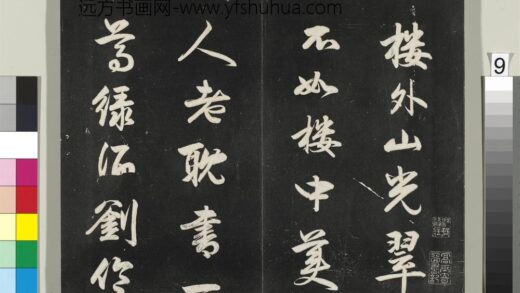 远方书画网-www.yfshuhua.com
樓外山光翠
不如樓中美
人老耽書一
尊緑酒劉伶
9